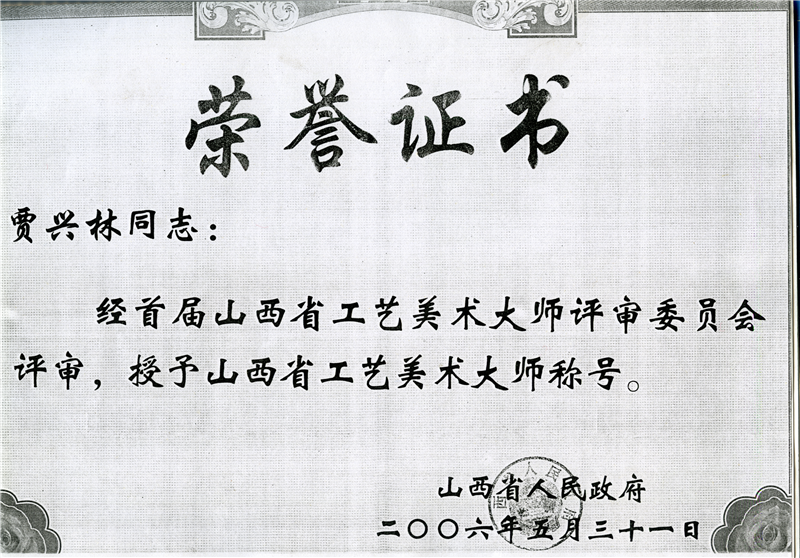 荣誉证书
贾兴林同志：
经首届山西省工艺美术大师评审委员会
评审，授予山西省工艺美术大师称号。
山西省人民政府
二〇〇六年五月三十一日